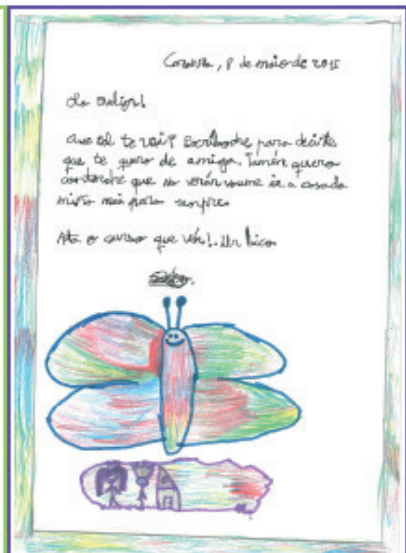 de maio de 2015
Que tal te vai? Escríboche para decirte
que te quero de amiga. Tamén quero
contarche que no verán voume ir a casa da
miña nai para sempre
Ata o curso que vén! Un bico